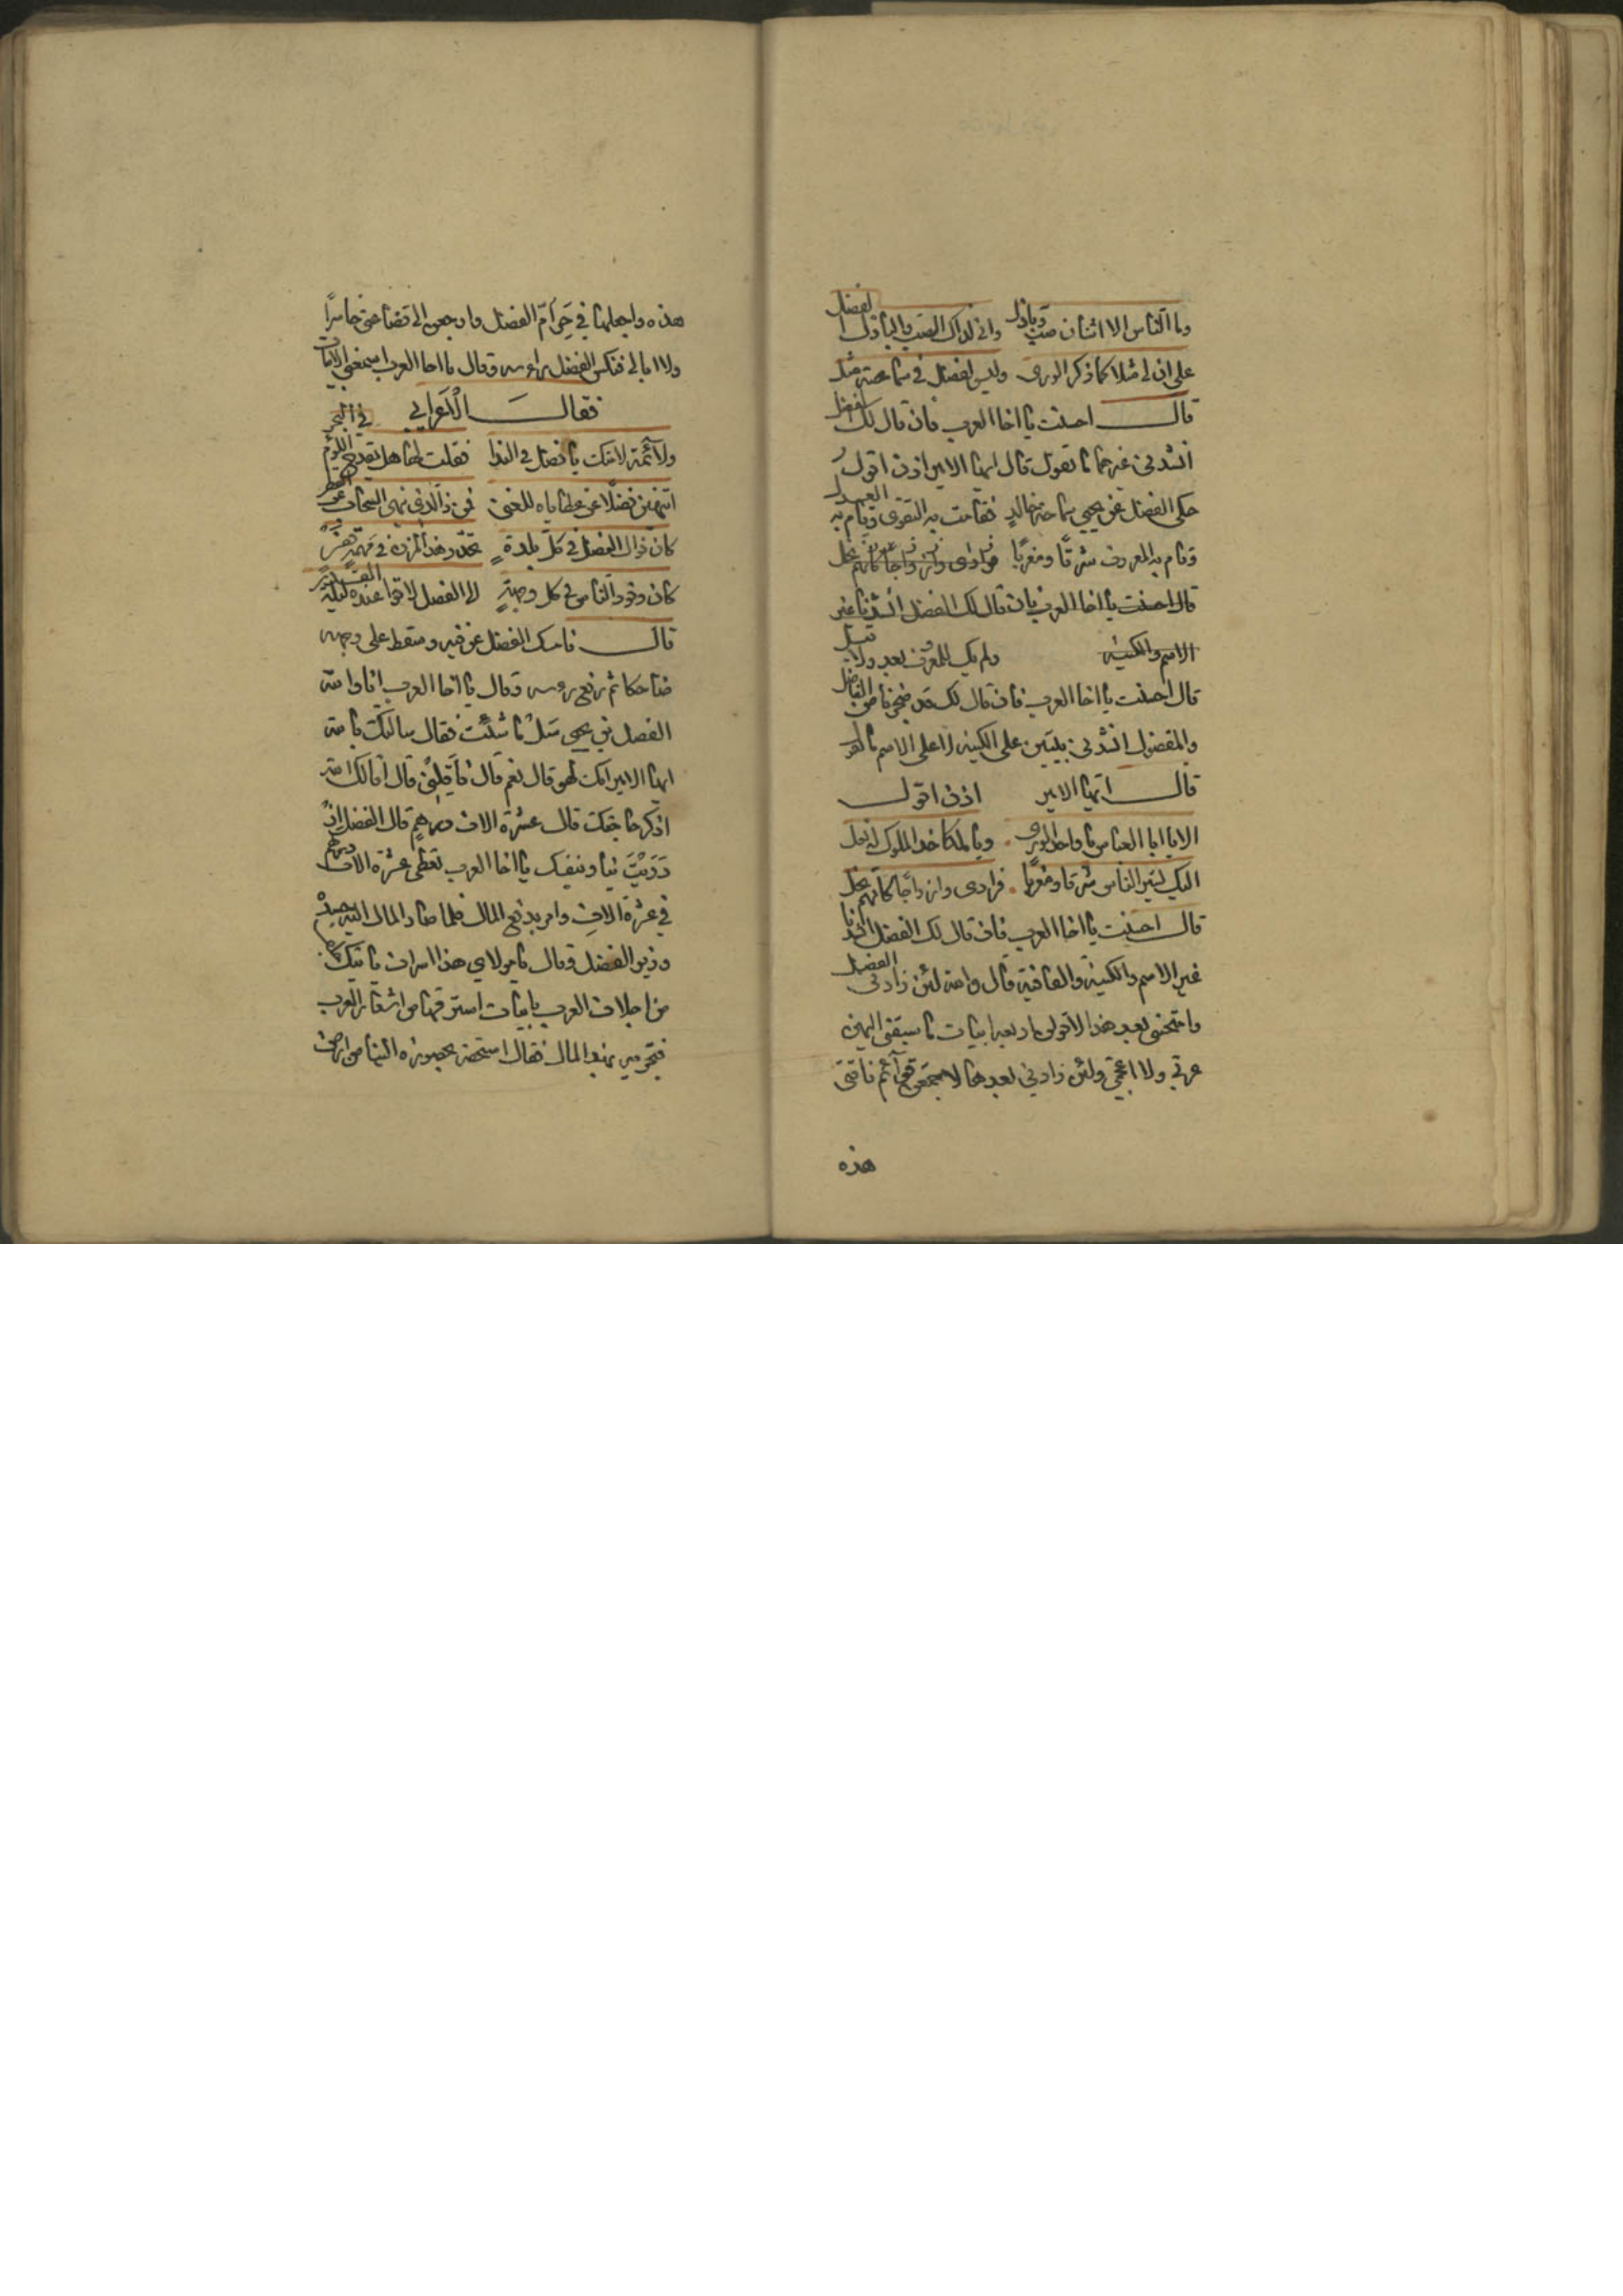 وما الناس الا اثنان صب وباذل واني لذاك الصب والباذل الفضل
على ان لي مثلا كما ذكر الورى وليس لفضل في سماحته مثل
قال احسنت يا اخا العرب فان قال لك الفضل
انشدني غيرهما ما تقول قال ايها الامير اذن اقول
حكى الفضل عن يحيى سماحة خالد فقامت به التقوى وقام به العدل
وقام به المعروف شرقا ومغربا ولم يك للمعروف بعد ولا قبل
قال احسنت يا اخا العرب فان قال لك الفضل انشدنا غير
الاسم والكنيه
قال احسنت يا اخا العرب فان قال لك قد ضجرنا من الفاضل
والمفضول انشدني بيتين على الكنيه لا على الاسم ما تقول
قال ايها الامير اذن اقول
الا يا ابا العباس يا واحد الورى ويا ملكا خد الملوك له نعل
اليك تسير الناس شرقا ومغربا فرادى وازواجا كانهم نحل
قال احسنت يا اخا العرب فان قال لك الفضل انشدنا
غير الاسم والكنية والقافية قال والله لئن زادني الفضل
وامتحنني بعد هذا لاقولن اربعه ابيات ما سبقني اليهن
عربي ولا اعجمي ولئن زادني بعدها لاجمعن قوائم ناقتي
هذه
هذه واجعلها في حر ام الفضل وارجعن الى قضاعتي خاسرا
ولا ابالي فنكس الفضل راسه وقال يا اخا العرب اسمعني الابيات
فقال الاعرابي
ولائمة لامتك يا فضل في الندا فقلت لها هل يقدح اللوم في البحر
اتنهين فضلا عن عطاياه للغنى فمن ذا الذي ينهى السحاب عن القطر
كان نوال الفضل في كل بلدة تحدر هذا المزن في مهمه قفر
كان وفود الناس في كل وجهة الى الفضل لاقوا عنده ليلة القدر
قال فامسك الفضل عن فيه وسقط على وجهه
ضاحكا ثم رفع راسه وقال يا اخا العرب انا والله
الفضل بن يحيى سل ما شئت فقال سالتك بالله
ايها الامير انك لهو قال نعم قال فاقلني قال اقالك الله
اذكر حاجتك قال عشرة الاف درهم قال الفضل
ازدريت بنا وبنفسك يا اخا العرب تعطى عشرة الاف درهم
في عشرة الاف وامر بدفع المال فلما صار المال اليه حسده
وزير الفضل وقال يا مولاي هذا اسراف ياتيك
من اجلاف العرب بابيات استرقها من اشعار العرب
فتجزيه بهذا المال فقال استحقه بحضوره الينا من ارض